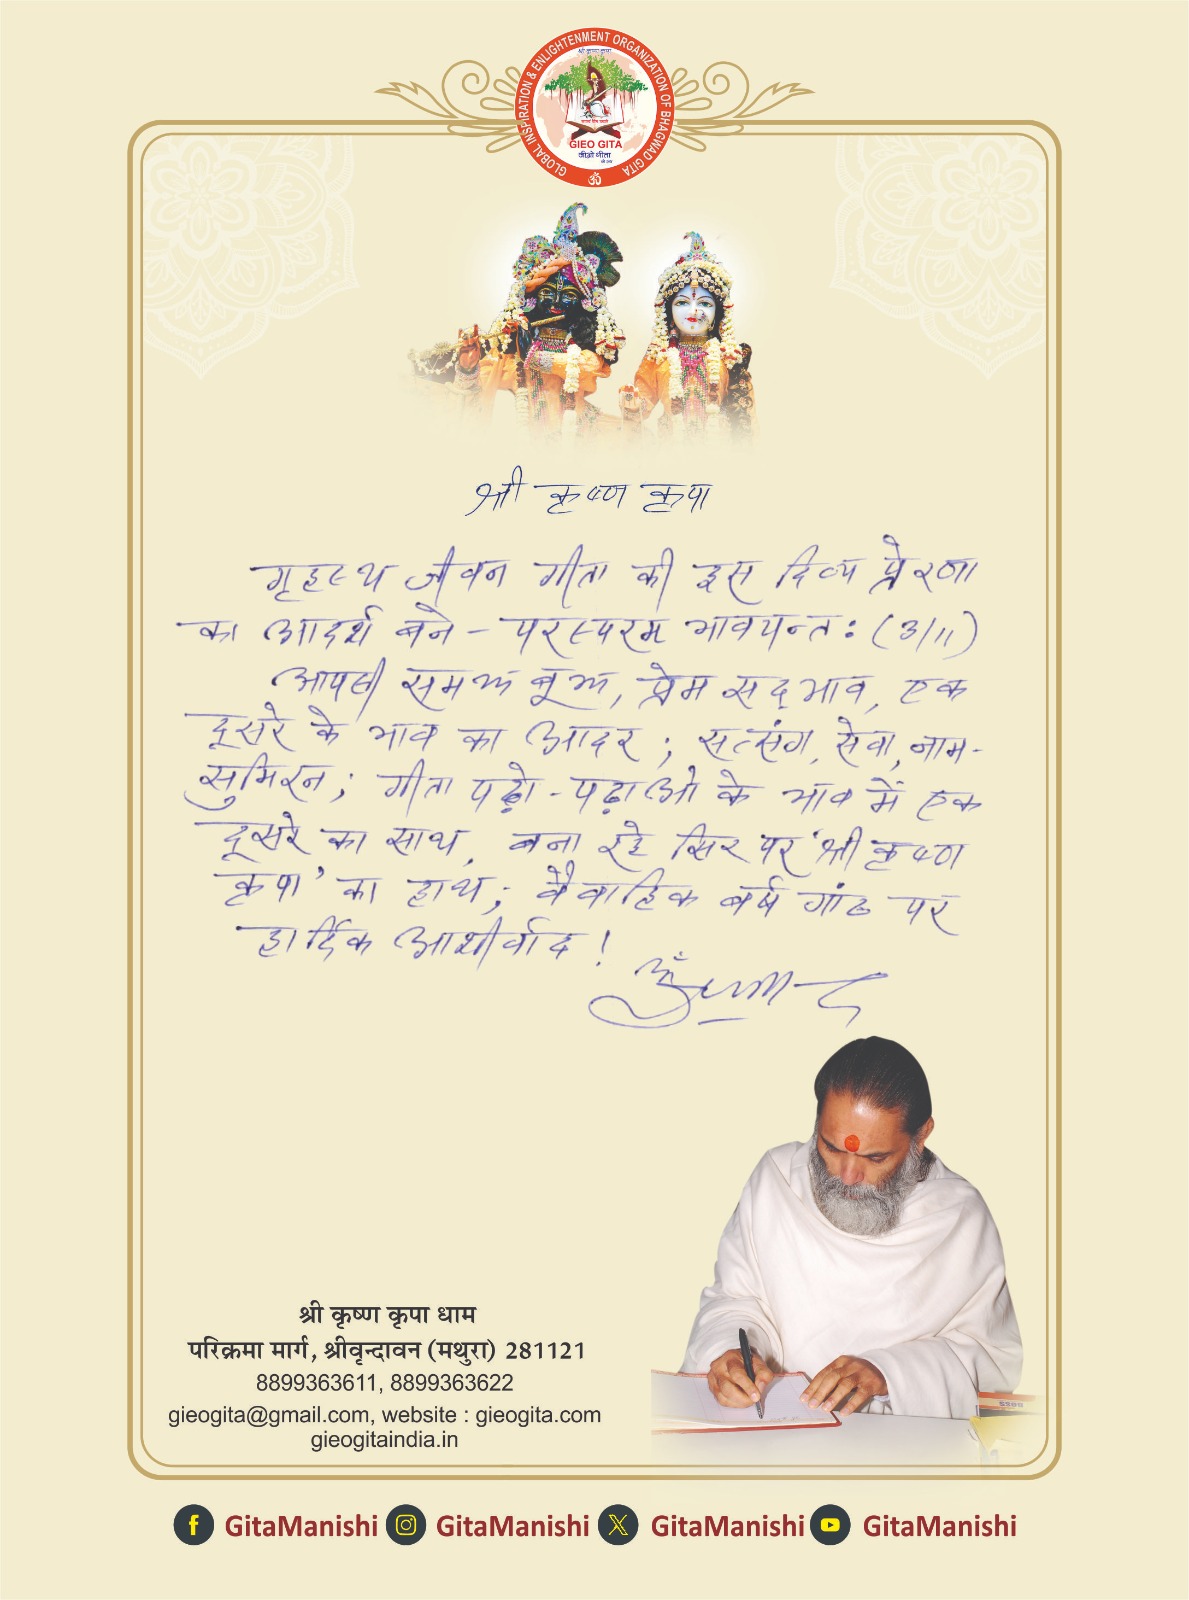 GLOBAL INSPIRATION & ENLIGHTENMENT ORGANIZATION OF BHAGWAD GITA
श्री कृष्ण कृपा
GIEO GITA
जीओ गीता
ॐ
श्री कृष्ण कृपा
गृहस्थ जीवन गीता की इस दिव्य प्रेरणा
का आदर्श बने - परस्परम भावयन्तः (3/11)
आपसी समझ बूझ, प्रेम सद्भाव, एक
दूसरे के भाव का आदर; सत्संग, सेवा, नाम-
सुमिरन; गीता पढ़ो - पढ़ाओ के भाव में एक
दूसरे का साथ, बना रहे सिर पर 'श्री कृष्ण
कृपा' का हाथ; वैवाहिक वर्ष गांठ पर
हार्दिक आशीर्वाद !
श्री कृष्ण कृपा धाम
परिक्रमा मार्ग, श्रीवृन्दावन (मथुरा) 281121
8899363611, 8899363622
gieogita@gmail.com, website : gieogita.com
gieogitaindia.in
GitaManishi GitaManishi GitaManishi GitaManishi